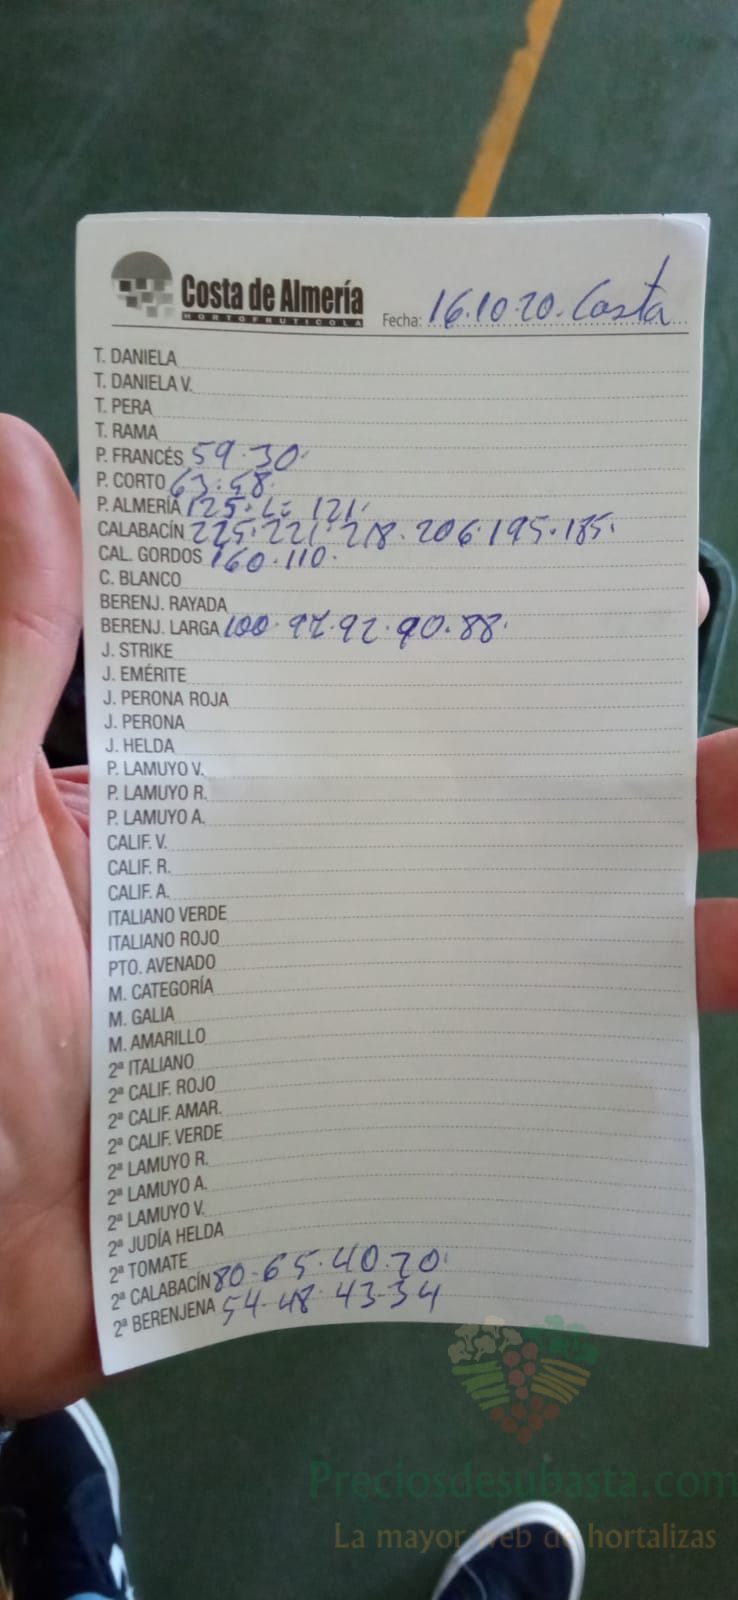 Costa de Almería
HORTOFRUTICOLA
Fecha: 16.10.20. Costa
T. DANIELA
T. DANIELA V.
T. PERA
T. RAMA
P. FRANCÉS 59.30.
P. CORTO 63.58.
P. ALMERÍA 125. 121.
CALABACÍN 225.221.218.206.195.185.
CAL. GORDOS 160.110.
C. BLANCO
BERENJ. RAYADA
BERENJ. LARGA 100. 92.90.88.
J. STRIKE
J. EMÉRITE
J. PERONA ROJA
J. PERONA
J. HELDA
P. LAMUYO V.
P. LAMUYO R.
P. LAMUYO A.
CALIF. V.
CALIF. R.
CALIF. A.
ITALIANO VERDE
ITALIANO ROJO
PTO. AVENADO
M. CATEGORÍA
M. GALIA
M. AMARILLO
2ª ITALIANO
2ª CALIF. ROJO
2ª CALIF. AMAR.
2ª CALIF. VERDE
2ª LAMUYO R.
2ª LAMUYO A.
2ª LAMUYO V.
2ª JUDÍA HELDA
2ª TOMATE
2ª CALABACÍN 80-65.40.20.
2ª BERENJENA 54-48.43-34
Preciosdesubasta.com
La mayor web de hortalizas